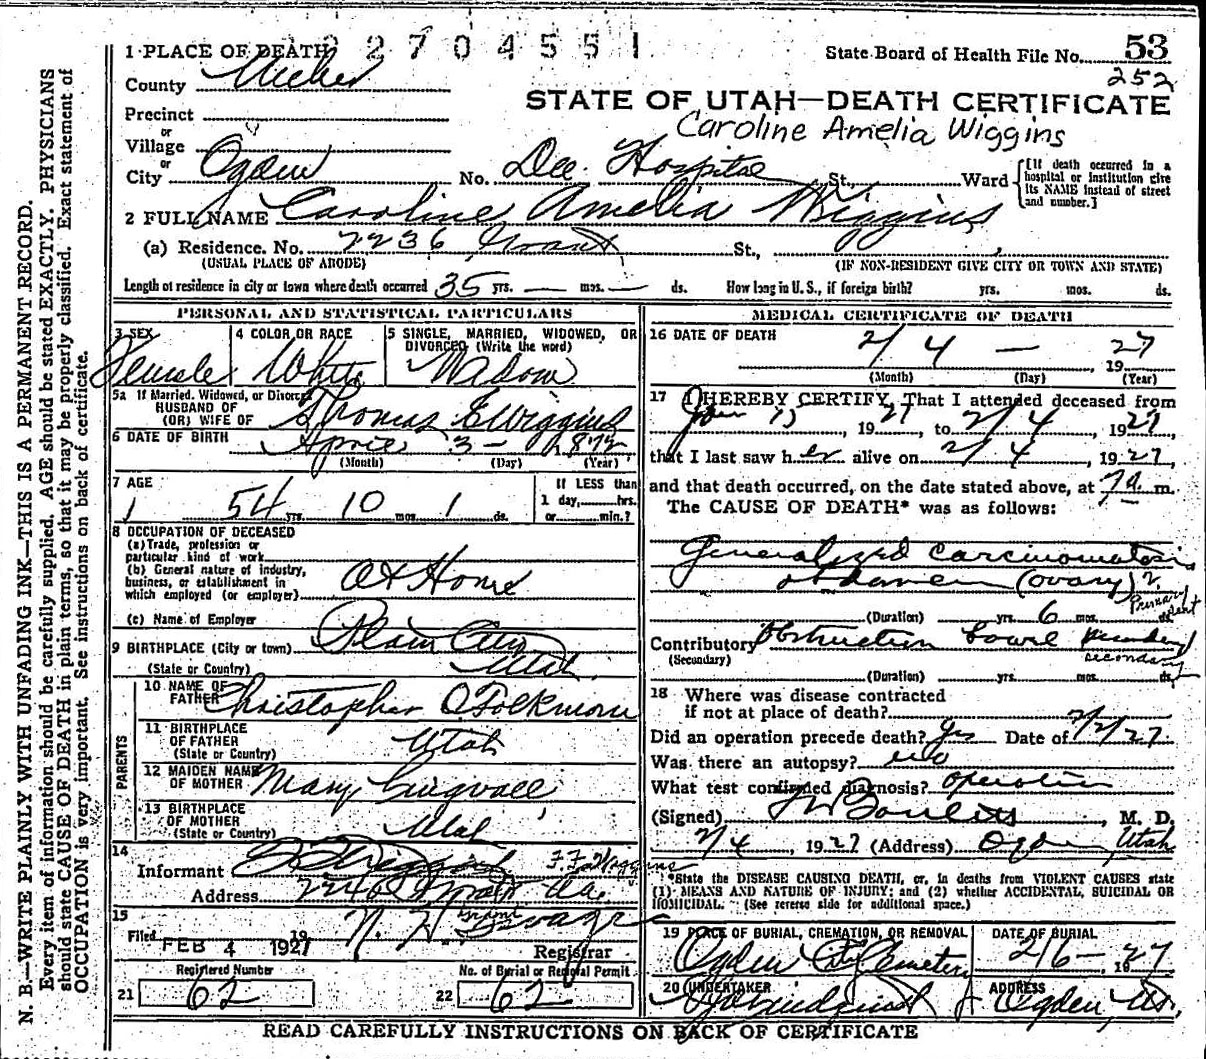 N. B.—WRITE PLAINLY WITH UNFADING INK—THIS IS A PERMANENT RECORD.
Every item of information should be carefully supplied. AGE should be stated EXACTLY. PHYSICIANS
should state CAUSE OF DEATH in plain terms, so that it may be properly classified. Exact statement of
OCCUPATION is very important. See instructions on back of certificate.
22704551
1 PLACE OF DEATH
State Board of Health File No. 53
252
County Weber
STATE OF UTAH—DEATH CERTIFICATE
Caroline Amelia Wiggins
Precinct
or
Village
or
City Ogden No. Dee Hospital St., Ward
[If death occurred in a
hospital or institution give
its NAME instead of street
and number.]
2 FULL NAME Caroline Amelia Wiggins
(a) Residence. No. 2236 Grant St.,
(USUAL PLACE OF ABODE) (IF NON-RESIDENT GIVE CITY OR TOWN AND STATE)
Length of residence in city or town where death occurred 35 yrs. — mos. — ds. How long in U. S., if foreign birth? yrs. mos. ds.
PERSONAL AND STATISTICAL PARTICULARS
3 SEX 4 COLOR OR RACE 5 SINGLE, MARRIED, WIDOWED, OR
DIVORCED (Write the word)
Female White Widow
5a If Married, Widowed, or Divorced
HUSBAND OF
(OR) WIFE OF Thomas E Wiggins
6 DATE OF BIRTH April 3 — 1872
(Month) (Day) (Year)
7 AGE
54 yrs. 10 mos. 1 ds.
If LESS than
1 day, hrs.
or min.?
8 OCCUPATION OF DECEASED
(a) Trade, profession or
particular kind of work
(b) General nature of industry,
business, or establishment in
which employed (or employer) At Home
(c) Name of Employer
9 BIRTHPLACE (City or town) Plain City
(State or Country) Utah
PARENTS
10 NAME OF
FATHER Christopher O Folkmann
11 BIRTHPLACE
OF FATHER
(State or Country) Utah
12 MAIDEN NAME
OF MOTHER Mary
13 BIRTHPLACE
OF MOTHER
(State or Country) Utah
14
Informant Wiggins
Address 2240 Grant Ave.
15
Filed FEB 4 1927 19
Registrar
Registered Number No. of Burial or Removal Permit
21 62 22 62
MEDICAL CERTIFICATE OF DEATH
16 DATE OF DEATH
2/4 — 1927
(Month) (Day) (Year)
17 I HEREBY CERTIFY, That I attended deceased from
Jan 1927, to 2/4, 1927
that I last saw her alive on 2/4, 1927,
and that death occurred, on the date stated above, at 7 a m.
The CAUSE OF DEATH* was as follows:
Generalized carcinomatosis
abdomen (ovary)
Primary
(Duration) yrs. 6 mos. ds.
Contributory Obstruction bowel
(Secondary) secondary
(Duration) yrs. mos. ds.
18 Where was disease contracted
if not at place of death?
Did an operation precede death? yes Date of 2/2/27
Was there an autopsy? no
What test confirmed diagnosis? operation
(Signed) M. D.
2/4, 1927 (Address) Ogden, Utah
*State the DISEASE CAUSING DEATH, or, in deaths from VIOLENT CAUSES state
(1) MEANS AND NATURE OF INJURY; and (2) whether ACCIDENTAL, SUICIDAL OR
HOMICIDAL. (See reverse side for additional space.)
19 PLACE OF BURIAL, CREMATION, OR REMOVAL DATE OF BURIAL
Ogden City Cemetery 2/6 — 1927
20 UNDERTAKER ADDRESS
Ogden, Ut.
READ CAREFULLY INSTRUCTIONS ON BACK OF CERTIFICATE